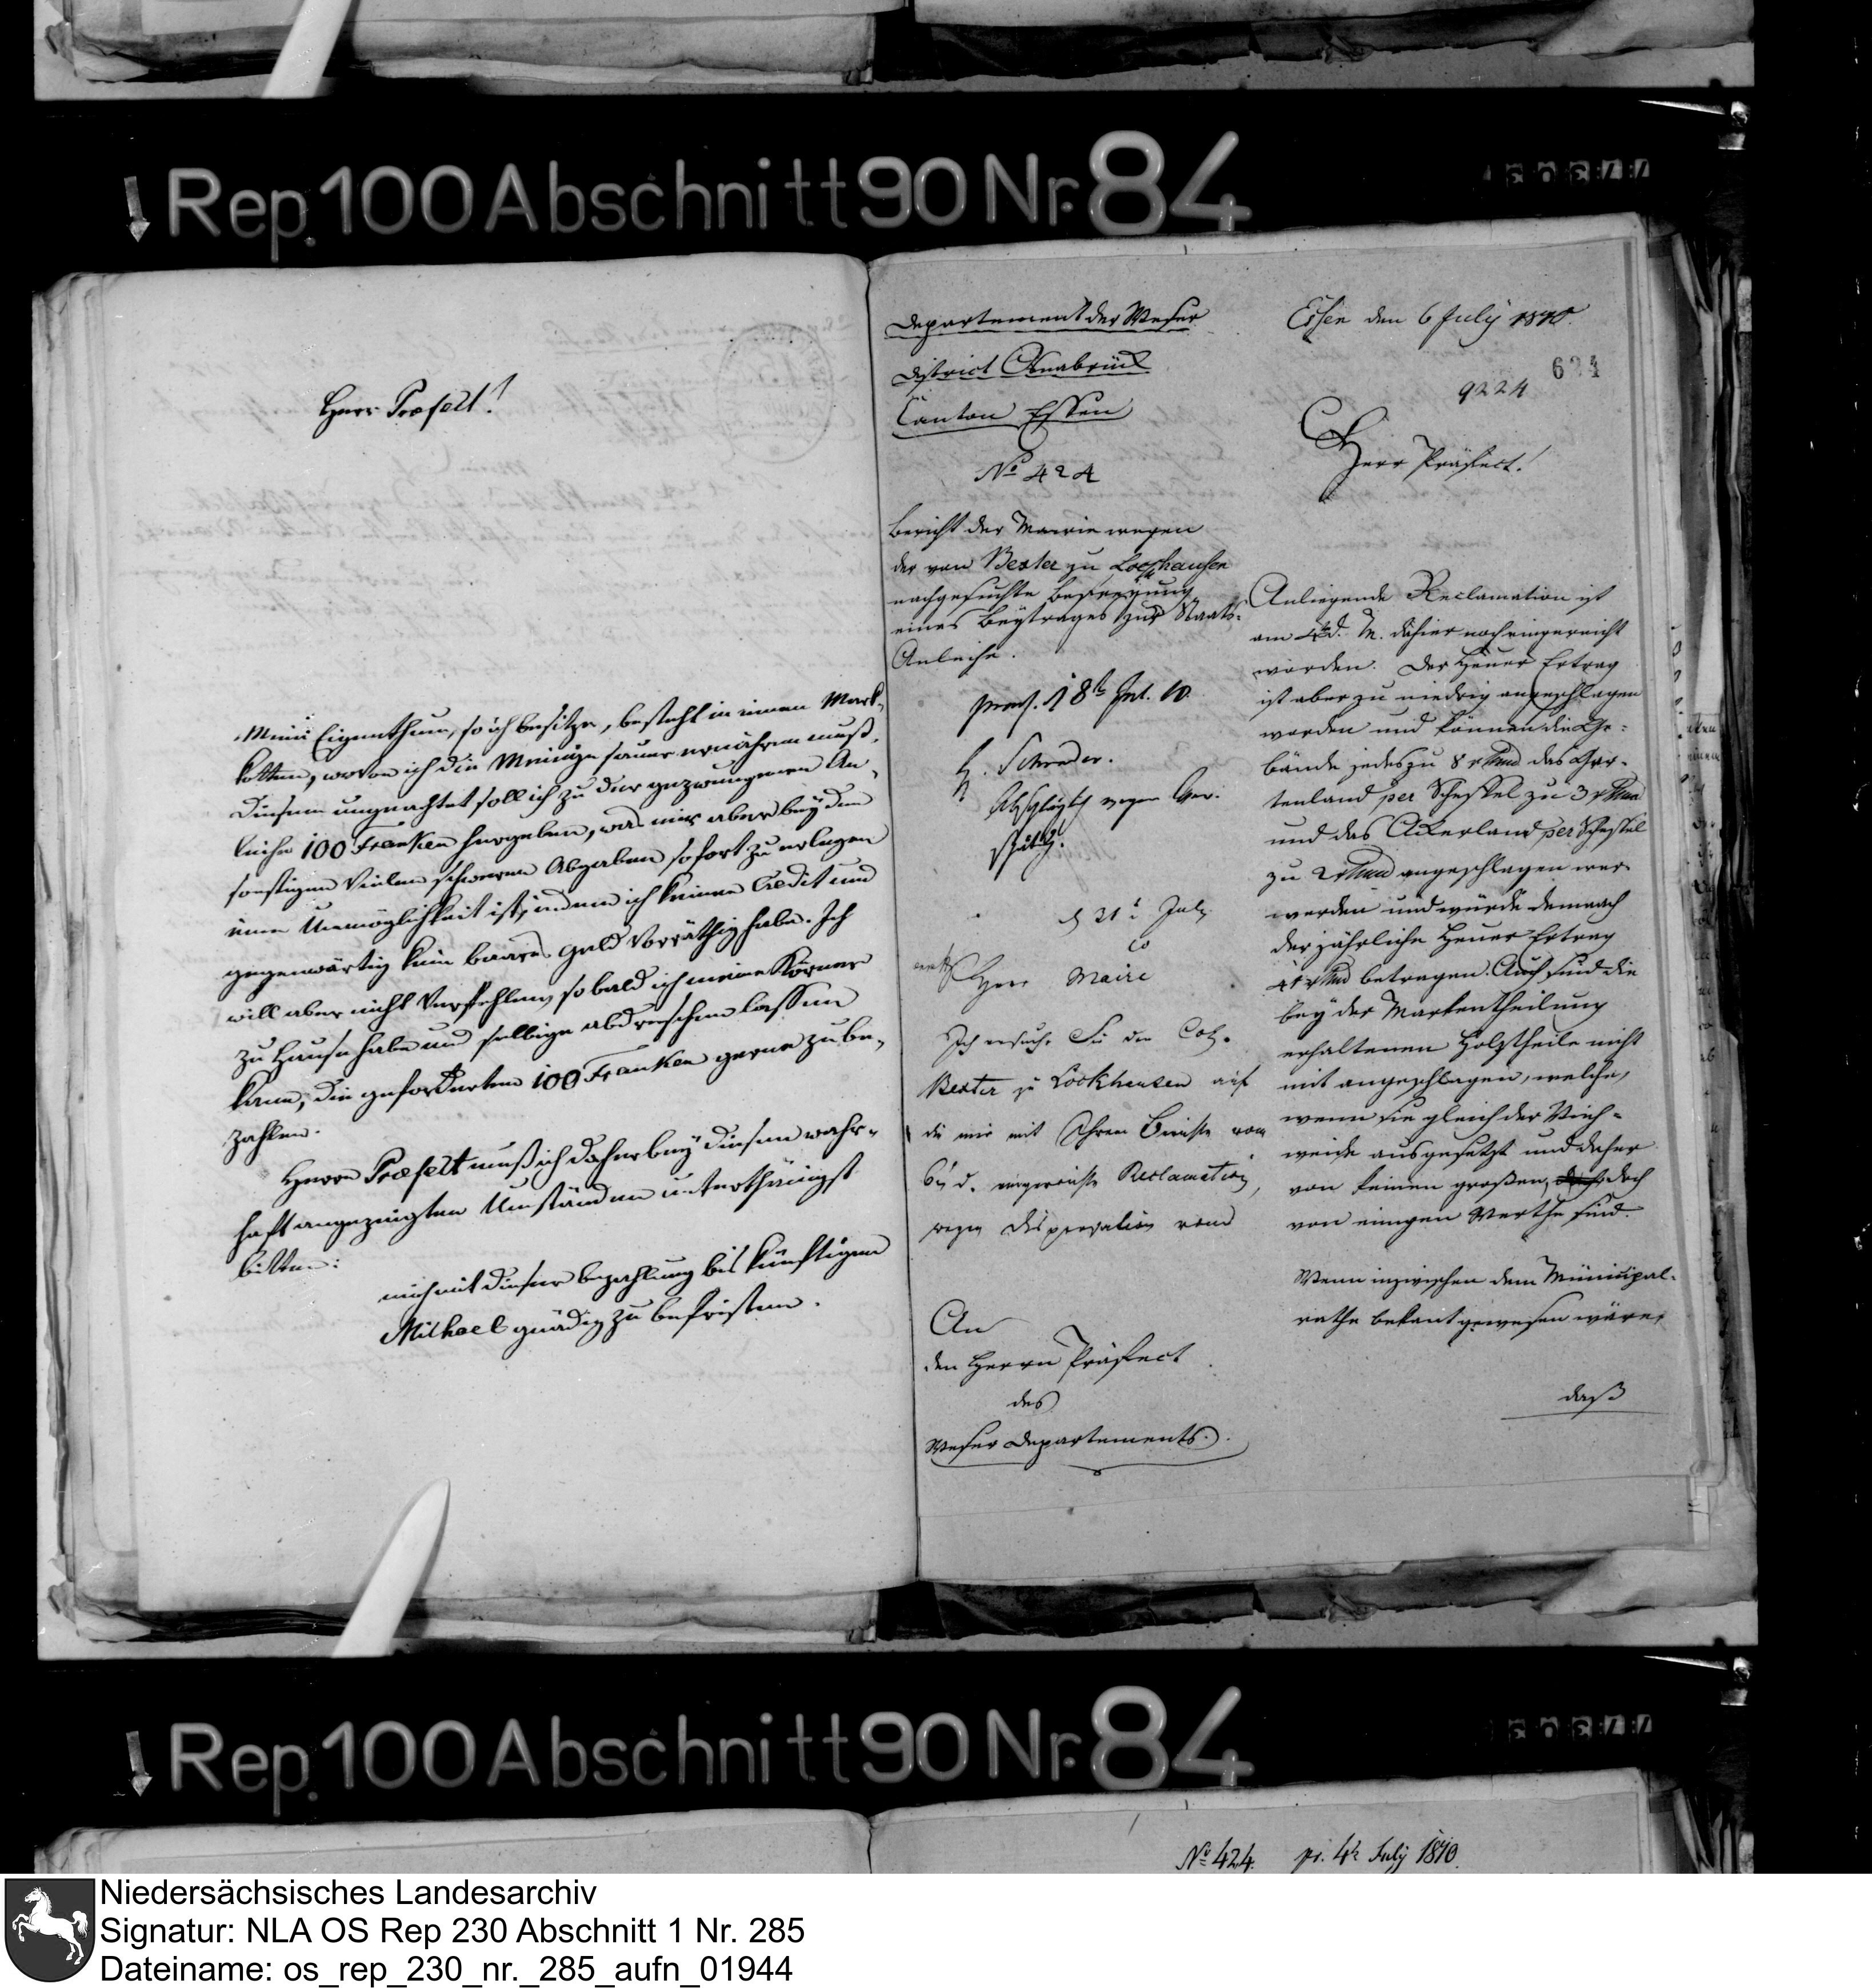 Rep. 100 Abschnitt 90 Nr. 84
Herr Præfect!
Mein Eigenthum, so ich besitze, besteht in einen Mark-
kotten, wovon ich die Meinige sauer ernähren muß,
diesem ungeachtet soll ich zu der gezwungenen An-
leihe 100 Franken hergeben, was mir aber bey den
sonstigen vielen schweren Abgaben sofort zu erlegen
eine Unmöglichkeit ist, indem ich keinen Credit und
gegenwärtig kein baares Geld vorräthig habe. Ich
will aber nicht verfehlen, so bald ich meine Körner
zu Hause habe und selbige abdreschen lassen
kann, die geforderten 100 Franken gerne zu be-
zahlen.
Herrn Præfect muß ich daher bey diesen wahr-
haft angezeigten Umständen unterthänigst
bitten:
mich mit dieser bezahlung bis künftigen
Michael gnädig zu befristen.
Departement der Weser
District Osnabrück
Canton Essen
No 424
Bericht der Mairie wegen
der von Bexter zu Lockhausen
nachgesuchte Befreyung
eines Beytrages zur Staats-
Anleihe.
praes. 18t Jul. 10
H. Schrader.
Abschlägig wegen Ver-
spätg.
d 21t July
Herr Maire
Ich ersuche Sie den Col.
Bexter zu Lockhausen auf
die mir mit Ihrem Berichte vom
6t d. eingereichte Reclamation,
wegen Dispensation vom
An
den Herrn Präfect
des
Weser Departements.
Essen den 6 July 1810.
624
9224
Herr Präfect!
Anliegende Reclamation ist
am 4t d. M. dahier noch eingereicht
worden. Der Heuer Ertrag
ist aber zu niedrig angeschlagen
worden und können die Ge-
bäude jedes zu 8 rthlr das Gar-
tenland per Scheffel zu 3 rthlr
und das Ackerland per Scheffel
zu 2 rthlr angeschlagen wer-
werden und würde demnach
der jährliche Heuer Ertrag
rthlr betragen. Auch sind die
bey der Markentheilung
erhaltenen Holztheile nicht
mit angeschlagen, welche,
wenn sie gleich der Vieh-
weide ausgesetzt und daher
von keinen großen, doch
von einigen Werthe sind.
Wenn inzwischen dem Municipal-
rathe bekant gewesen wäre,
daß
Rep. 100 Abschnitt 90 Nr. 84
No 424. pr. 4t July 1810.
Niedersächsisches Landesarchiv
Signatur: NLA OS Rep 230 Abschnitt 1 Nr. 285
Dateiname: os_rep_230_nr._285_aufn_01944